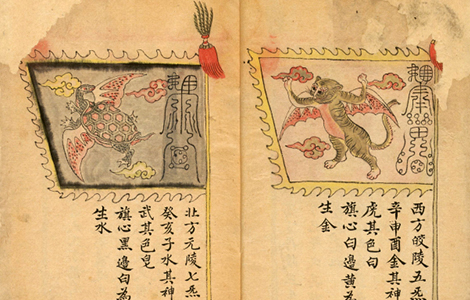 西方皎陵五炁
辛申酉金其神
虎其色白
旗心白邊黄為
生金
北方元陵七炁
癸亥子水其神
武其色皂
旗心黑邊白為
生水